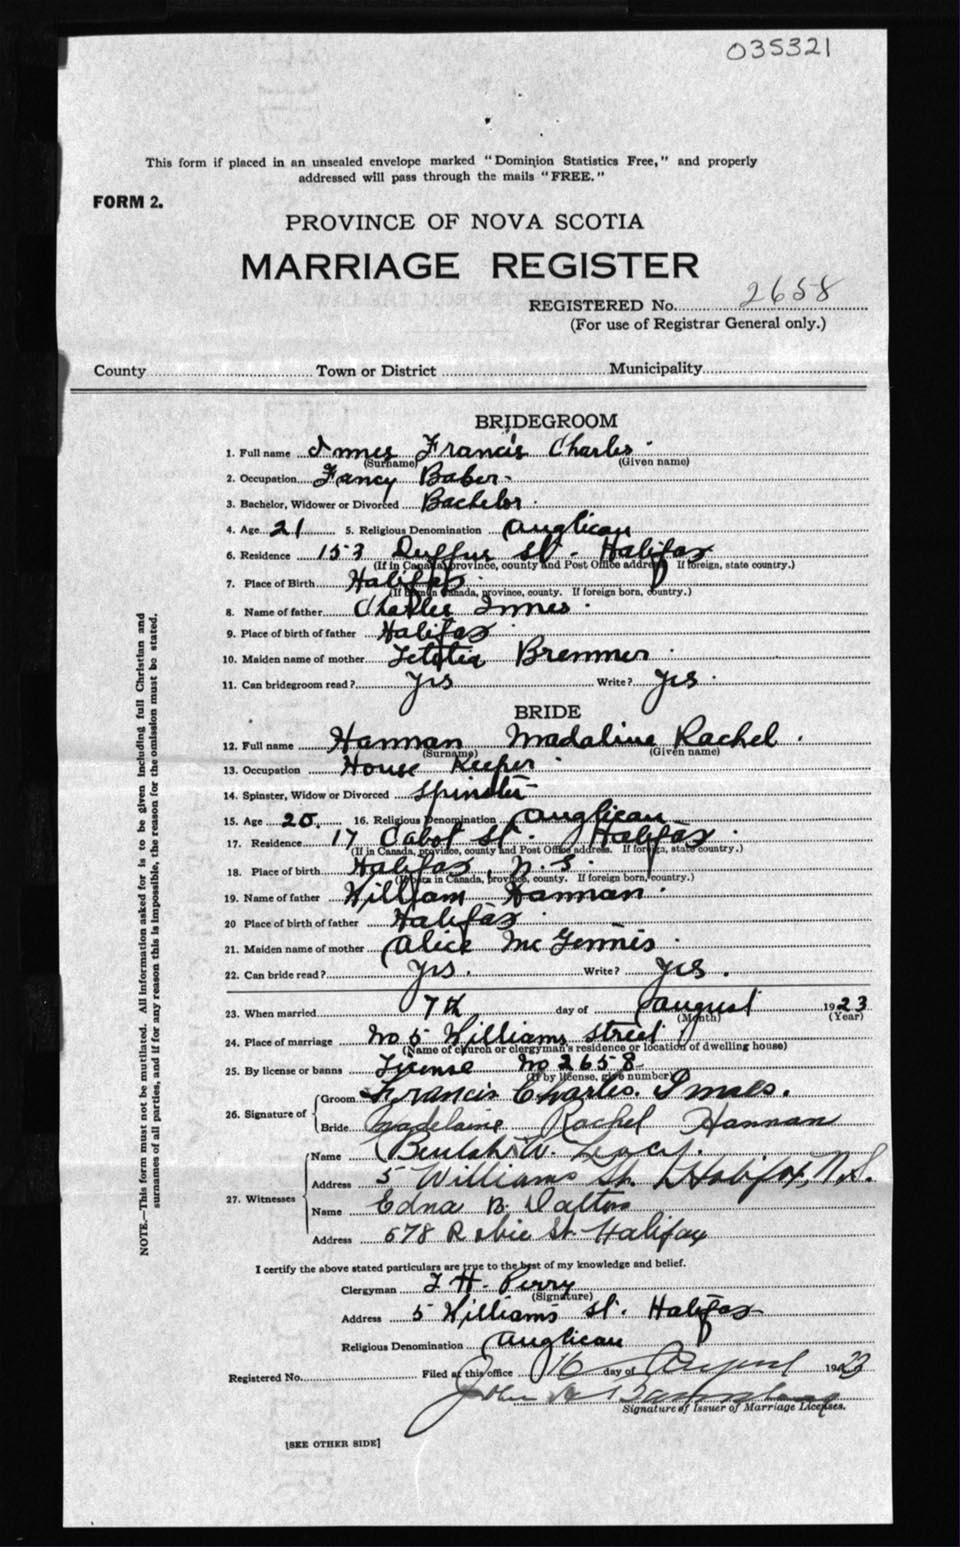 035321
This form if placed in an unsealed envelope marked "Dominion Statistics Free," and properly
addressed will pass through the mails "FREE."
FORM 2.
PROVINCE OF NOVA SCOTIA
MARRIAGE REGISTER
REGISTERED No. 2658
(For use of Registrar General only.)
County Town or District Municipality
BRIDEGROOM
1. Full name Innes Francis Charles
(Surname) (Given name)
2. Occupation Fancy Baber
3. Bachelor, Widower or Divorced Bachelor
4. Age 21 5. Religious Denomination Anglican
6. Residence 153 Duffus St. Halifax
(If in Canada, province, county and Post Office address. If foreign, state country.)
7. Place of Birth Halifax
(If born in Canada, province, county. If foreign born, country.)
8. Name of father Charles Innes
9. Place of birth of father Halifax
10. Maiden name of mother Letitia Bremner
11. Can bridegroom read? Yes Write? Yes
BRIDE
12. Full name Hannan Madaline Rachel
(Surname) (Given name)
13. Occupation House Keeper
14. Spinster, Widow or Divorced Spinster
15. Age 20. 16. Religious Denomination Anglican
17. Residence 17 Cabot St. Halifax
(If in Canada, province, county and Post Office address. If foreign, state country.)
18. Place of birth Halifax, N.S.
(If in Canada, province, county. If foreign born, country.)
19. Name of father William Hannan
20 Place of birth of father Halifax
21. Maiden name of mother Alice McGinnis
22. Can bride read? Yes. Write? Yes.
23. When married 7th day of August 1923
(Month) (Year)
24. Place of marriage No 5 Williams Street
(Name of church or clergyman's residence or location of dwelling house)
25. By license or banns License No 2658
(If by license, give number)
26. Signature of Groom Francis Charles. Innes.
Bride Madelaine Rachel Hannan
27. Witnesses Name Beulah W.
Address 5 Williams St. Halifax, N.S.
Name Edna B. Dalton
Address 678 Robie St Halifax
I certify the above stated particulars are true to the best of my knowledge and belief.
Clergyman T. H. Perry
(Signature)
Address 5 Williams St. Halifax
Religious Denomination Anglican
Registered No. Filed at this office 16 day of August 1923
John
Signature of Issuer of Marriage Licenses.
[SEE OTHER SIDE]
NOTE.—This form must not be mutilated. All information asked for is to be given including full Christian and
surnames of all parties, and if for any reason this is impossible, the reason for the omission must be stated.